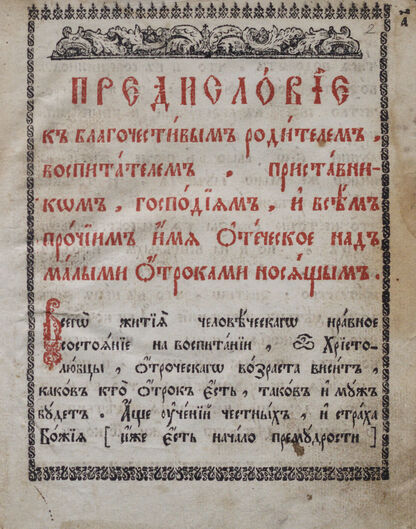 2
ПРЕДИСЛО́ВЇЕ
къ благочести́вымъ роди́телемъ,
воспита́телемъ, приставни-
кѡмъ, господі́ямъ, и҆ всѣ̑мъ
про́чїимъ и҆́мѧ ѻ҆те́ческое надъ
ма́лыми ѻ҆́троками носѧ́щымъ.
Всегѡ̀ житїѧ̀ человѣ́ческагѡ нра́вное
состоѧ́нїе на воспита́нїи, ѽ Хрїсто-
лю́бцы, ѻ҆́троческагѡ во́зраста виси́тъ,
како́въ кто̀ ѻ҆́трокъ є҆́сть, тако́въ и҆ мꙋ́жъ
бꙋ́детъ. А҆́ще ᲂу҆че́нїй че́стныхъ, и҆ стра́ха
Бо́жїѧ [и҆́же є҆́сть нача́ло премꙋ́дрости]